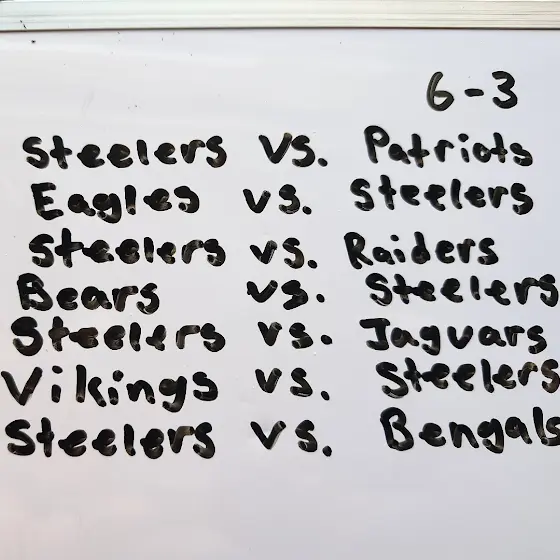 6-3
Steelers vs. Patriots
Eagles vs. Steelers
Steelers vs. Raiders
Bears vs. Steelers
Steelers vs. Jaguars
Vikings vs. Steelers
Steelers vs. Bengals